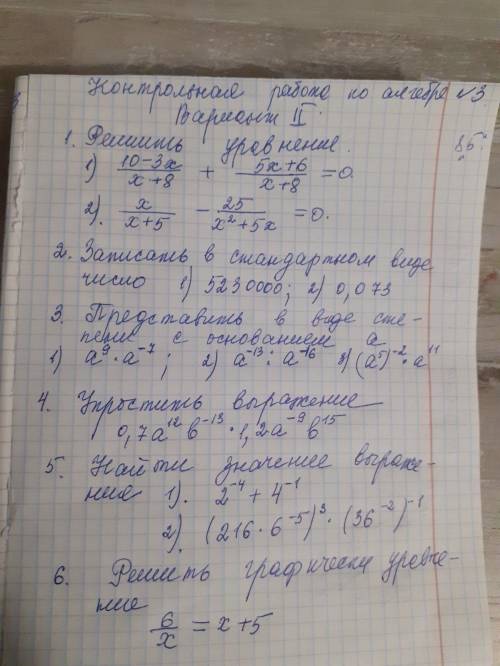 Контрольная работа по алгебре №3
Вариант II.
1. Решить уравнение.
1) (10-3x)/(x+8) + (5x+6)/(x+8) = 0.
2). x/(x+5) - 25/(x²+5x) = 0.
2. Записать в стандартном виде
число 1) 5230000; 2) 0,073
3. Представить в виде сте-
пени с основанием a
1) a⁹ · a⁻⁷; 2) a⁻¹³ : a⁻¹⁶ 3) (a⁵)⁻² · a¹¹
4. Упростить выражение
0,7a¹²b⁻¹³ · 1,2a⁻⁹b¹⁵
5. Найти значение выраже-
ния 1). 2⁻⁴ + 4⁻¹
2). (216 · 6⁻⁵)³ · (36⁻²)⁻¹
6. Решить графически уравне-
ние
6/x = x+5